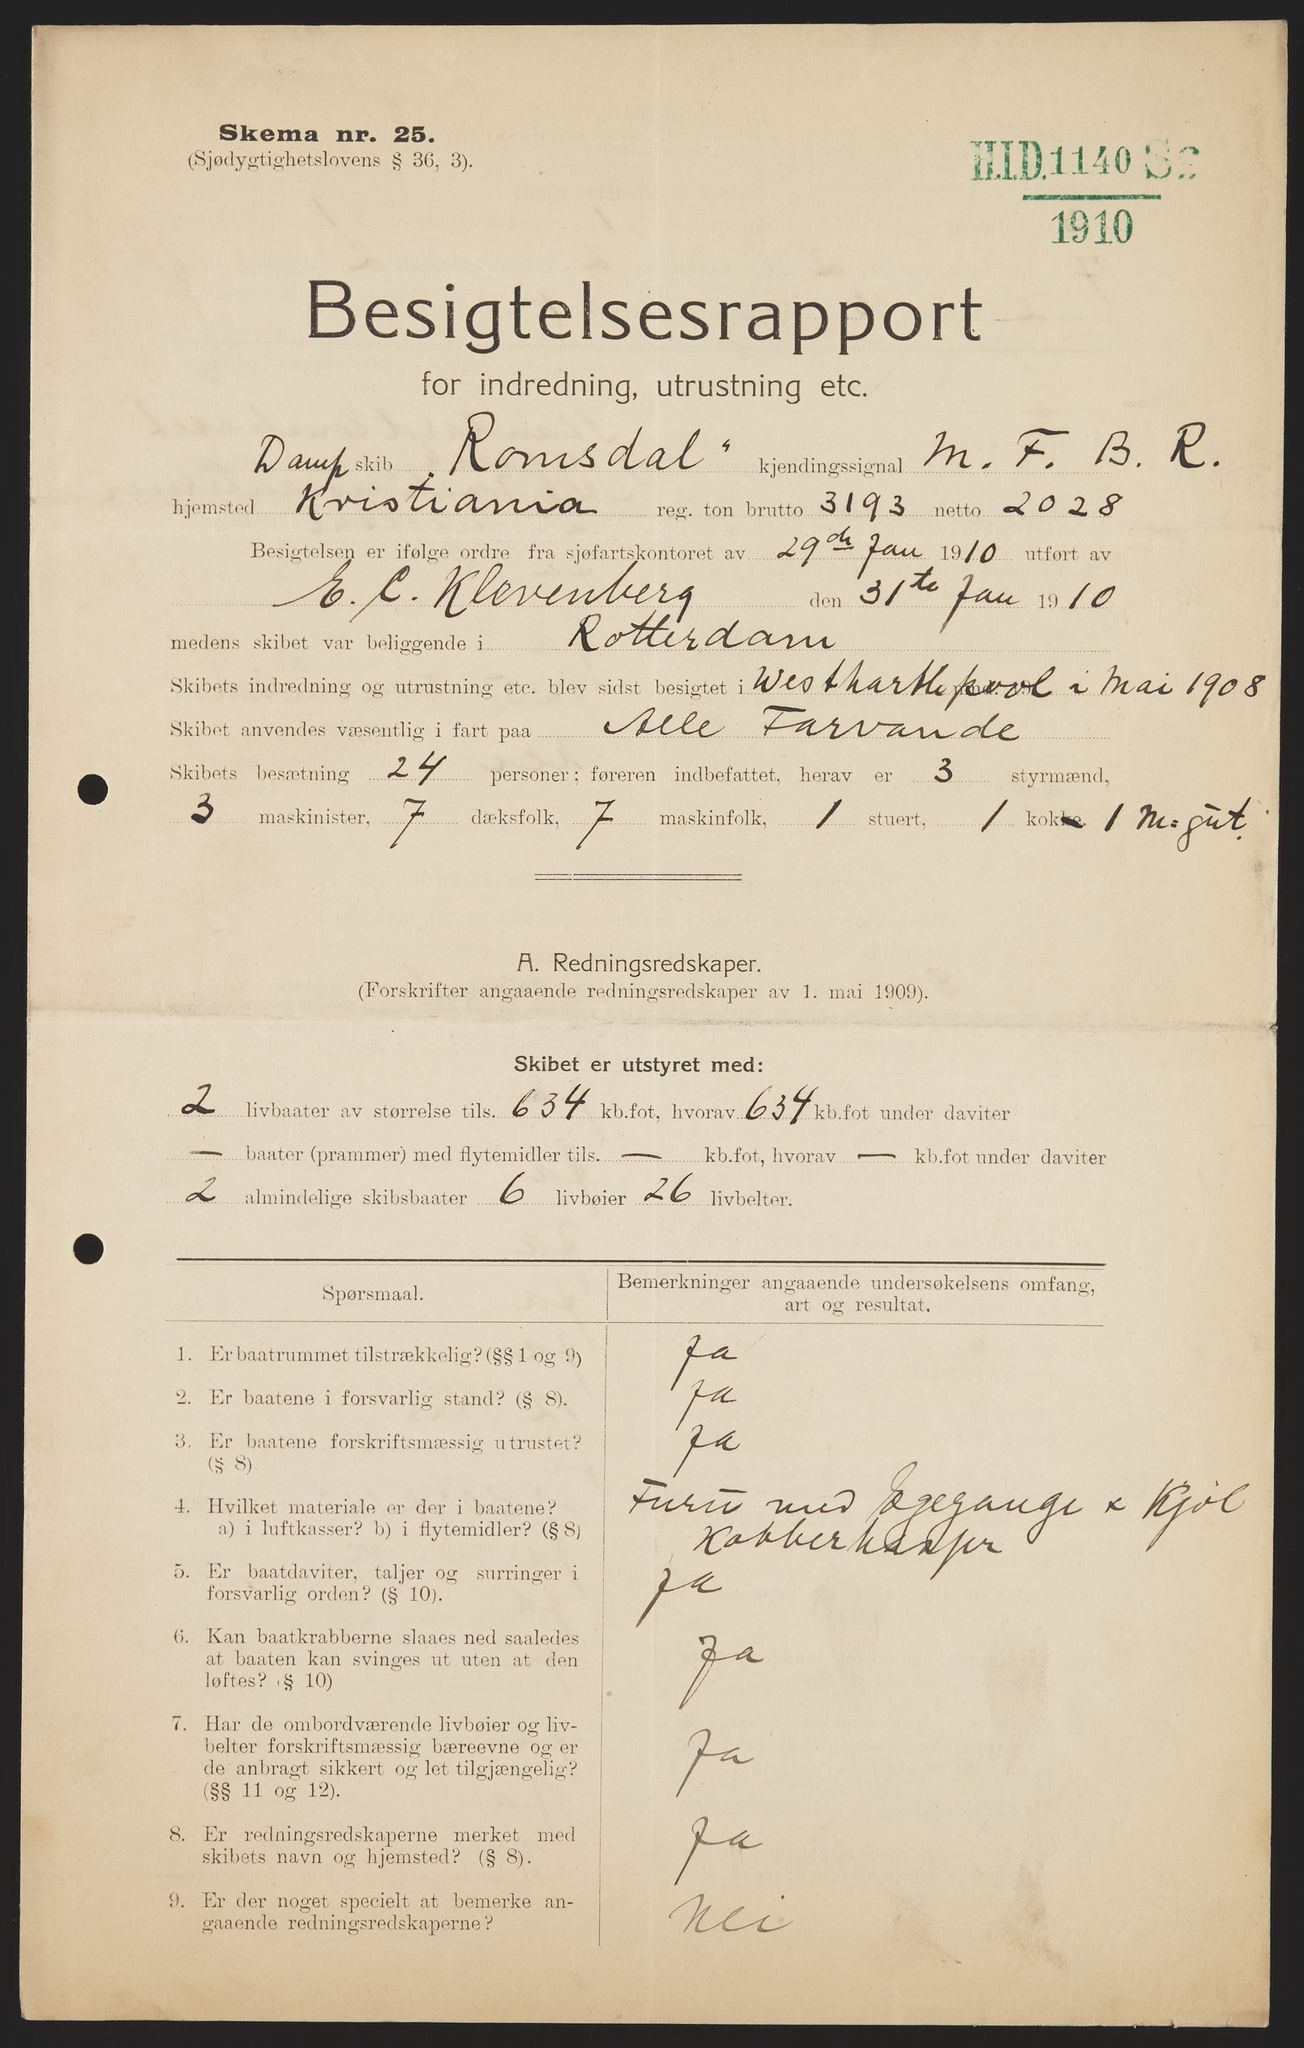 Skema nr. 25.
(Sjødygtighetslovens § 36, 3).
H.I.D. 1140 Sc
1910
Besigtelsesrapport
for indredning, utrustning etc.
Dampskib „Romsdal“ kjendingssignal M. F. B. R.
hjemsted Kristiania reg. ton brutto 3193 netto 2028
Besigtelsen er ifølge ordre fra sjøfartskontoret av 29de Jan 1910 utført av
E. C. Klevenberg den 31te Jan 1910
medens skibet var beliggende i Rotterdam
Skibets indredning og utrustning etc. blev sidst besigtet i Westhartlepool i Mai 1908
Skibet anvendes væsentlig i fart paa Alle Farvande
Skibets besætning 24 personer; føreren indbefattet, herav er 3 styrmænd,
3 maskinister, 7 dæksfolk, 7 maskinfolk, 1 stuert, 1 kokke 1 M=gut.
A. Redningsredskaper.
(Forskrifter angaaende redningsredskaper av 1. mai 1909).
Skibet er utstyret med:
2 livbaater av størrelse tils. 634 kb.fot, hvorav 634 kb.fot under daviter
— baater (prammer) med flytemidler tils. — kb.fot, hvorav — kb.fot under daviter
2 almindelige skibsbaater 6 livbøier 26 livbelter.
Spørsmaal.
Bemerkninger angaaende undersøkelsens omfang,
art og resultat.
1. Er baatrummet tilstrækkelig? (§§ 1 og 9) Ja
2. Er baatene i forsvarlig stand? (§ 8). Ja
3. Er baatene forskriftsmæssig utrustet? Ja
(§ 8)
4. Hvilket materiale er der i baatene? Furu med Egegange & Kjøl
a) i luftkasser? b) i flytemidler? (§ 8) Kobberkasser
5. Er baatdaviter, taljer og surringer i Ja
forsvarlig orden? (§ 10).
6. Kan baatkrabberne slaaes ned saaledes
at baaten kan svinges ut uten at den Ja
løftes? (§ 10)
7. Har de ombordværende livbøier og liv-
belter forskriftsmæssig bæreevne og er Ja
de anbragt sikkert og let tilgjængelig?
(§§ 11 og 12).
8. Er redningsredskaperne merket med Ja
skibets navn og hjemsted? (§ 8).
9. Er der noget specielt at bemerke an-
gaaende redningsredskaperne? Nei